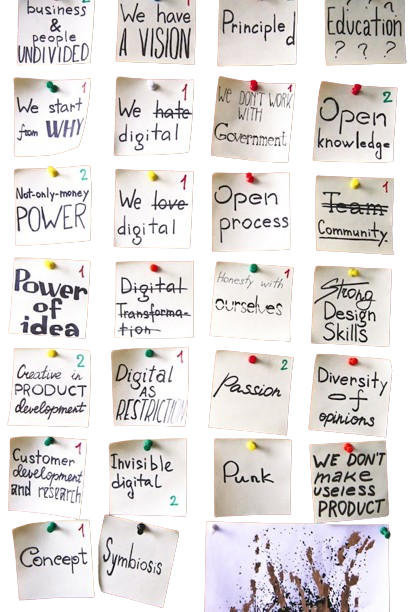 2
business
&
people
UNDIVIDED
1
We have
A VISION
Principled
Education
? ? ?
1
We start
from WHY
We hate
digital
1
We DON'T WORK
WITH
Government
2
Open
knowledge
2
Not-only-money
POWER
1
We love
digital
Open
process
Team
Community.
1
Power
of
idea
Digital
Transforma-
tion
1
Honesty with
ourselves
Strong
Design
Skills
2
Creative in
PRODUCT
development
1
Digital
AS
RESTRICTION
2
Passion
Diversity
of
opinions
1
Customer
development
and research
Invisible
digital
2
Punk
WE DON'T
make
useless
PRODUCT
1
Concept
Symbiosis